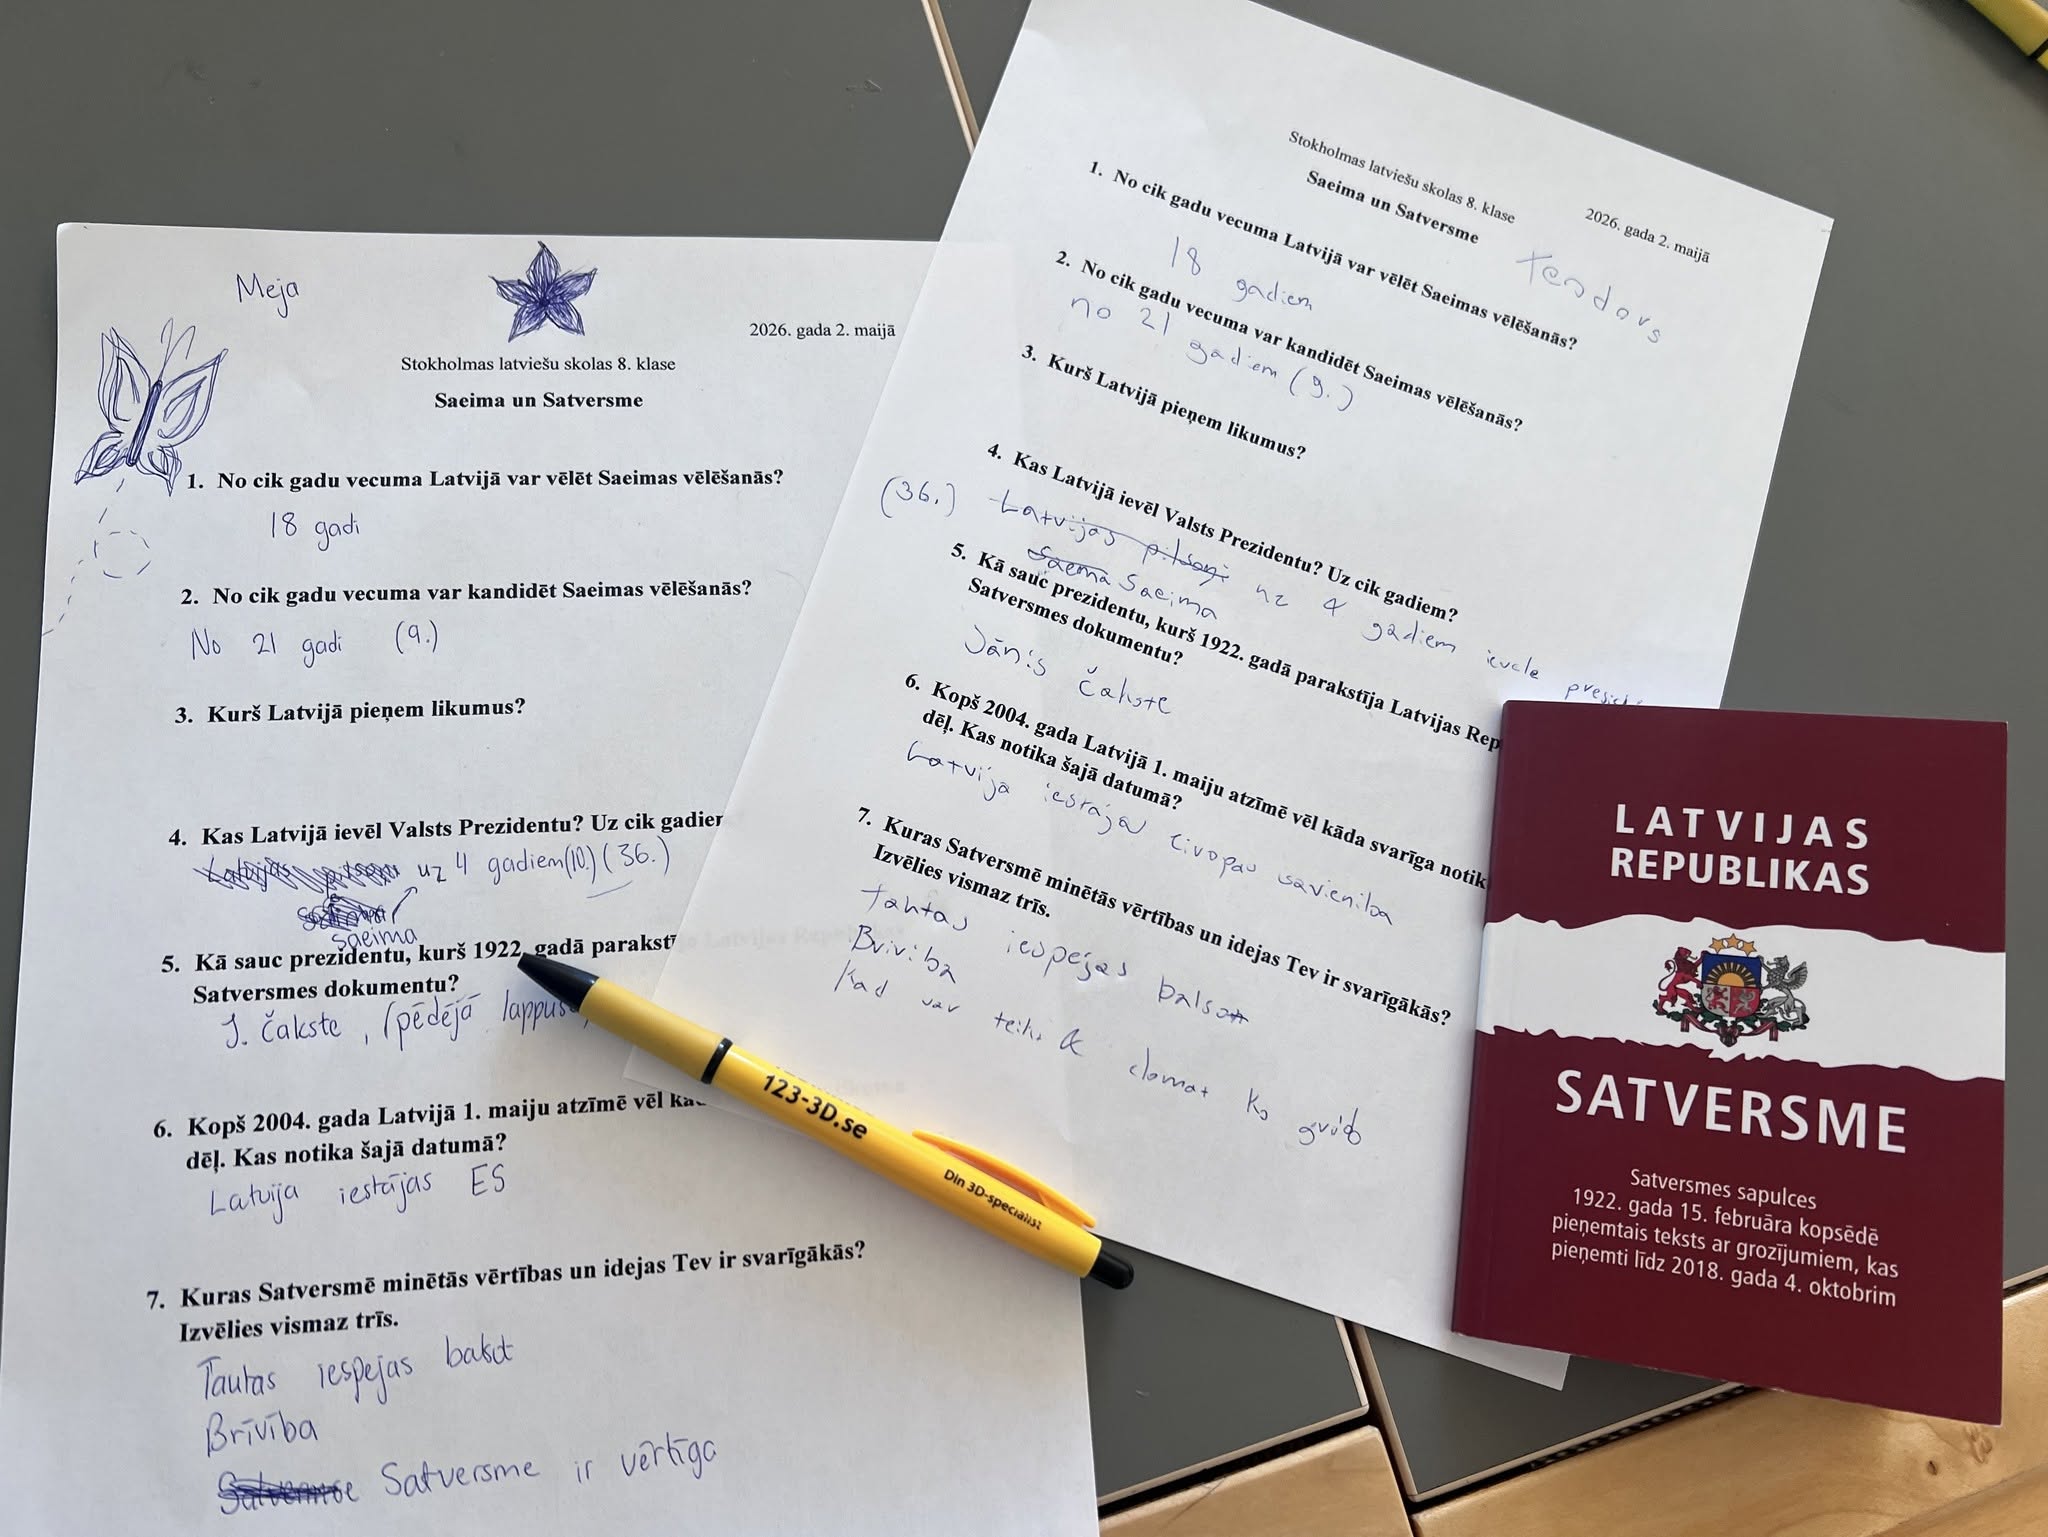 Meja
2026. gada 2. maijā
Stokholmas latviešu skolas 8. klase
Saeima un Satversme
1. No cik gadu vecuma Latvijā var vēlēt Saeimas vēlēšanās?
18 gadi
2. No cik gadu vecuma var kandidēt Saeimas vēlēšanās?
No 21 gadi (9.)
3. Kurš Latvijā pieņem likumus?
4. Kas Latvijā ievēl Valsts Prezidentu? Uz cik
uz 4 gadiem (10.) (36.)
saeima
5. Kā sauc prezidentu, kurš 1922. gadā
Satversmes dokumentu?
J. čakste, (pēdējā
6. Kopš 2004. gada Latvijā 1. maiju atzīmē vēl
dēļ. Kas notika šajā datumā?
Latvija iestājas ES
7. Kuras Satversmē minētās vērtības un idejas Tev ir svarīgākās?
Izvēlies vismaz trīs.
Tautas iespējas balsot
Brīvība
Satversme ir vērtīga
Stokholmas latviešu skolas 8. klase
2026. gada 2. maijā
Saeima un Satversme
Teodors
1. No cik gadu vecuma Latvijā var vēlēt Saeimas vēlēšanās?
18 gadiem
2. No cik gadu vecuma var kandidēt Saeimas vēlēšanās?
no 21 gadiem (9.)
3. Kurš Latvijā pieņem likumus?
4. Kas Latvijā ievēl Valsts Prezidentu? Uz cik gadiem?
(36.) Latvijas uz 4 gadiem
Saeima
5. Kā sauc prezidentu, kurš 1922. gadā parakstīja Latvijas
Satversmes dokumentu?
Jānis čakste
6. Kopš 2004. gada Latvijā 1. maiju atzīmē vēl kāda svarīga
dēļ. Kas notika šajā datumā?
Latvija
7. Kuras Satversmē minētās vērtības un idejas Tev ir svarīgākās?
Izvēlies vismaz trīs.
iespejas
Kad var
123-3D.se
Din 3D-specialist
LATVIJAS
REPUBLIKAS
SATVERSME
Satversmes sapulces
1922. gada 15. februāra kopsēdē
pieņemtais teksts ar grozījumiem, kas
pieņemti līdz 2018. gada 4. oktobrim